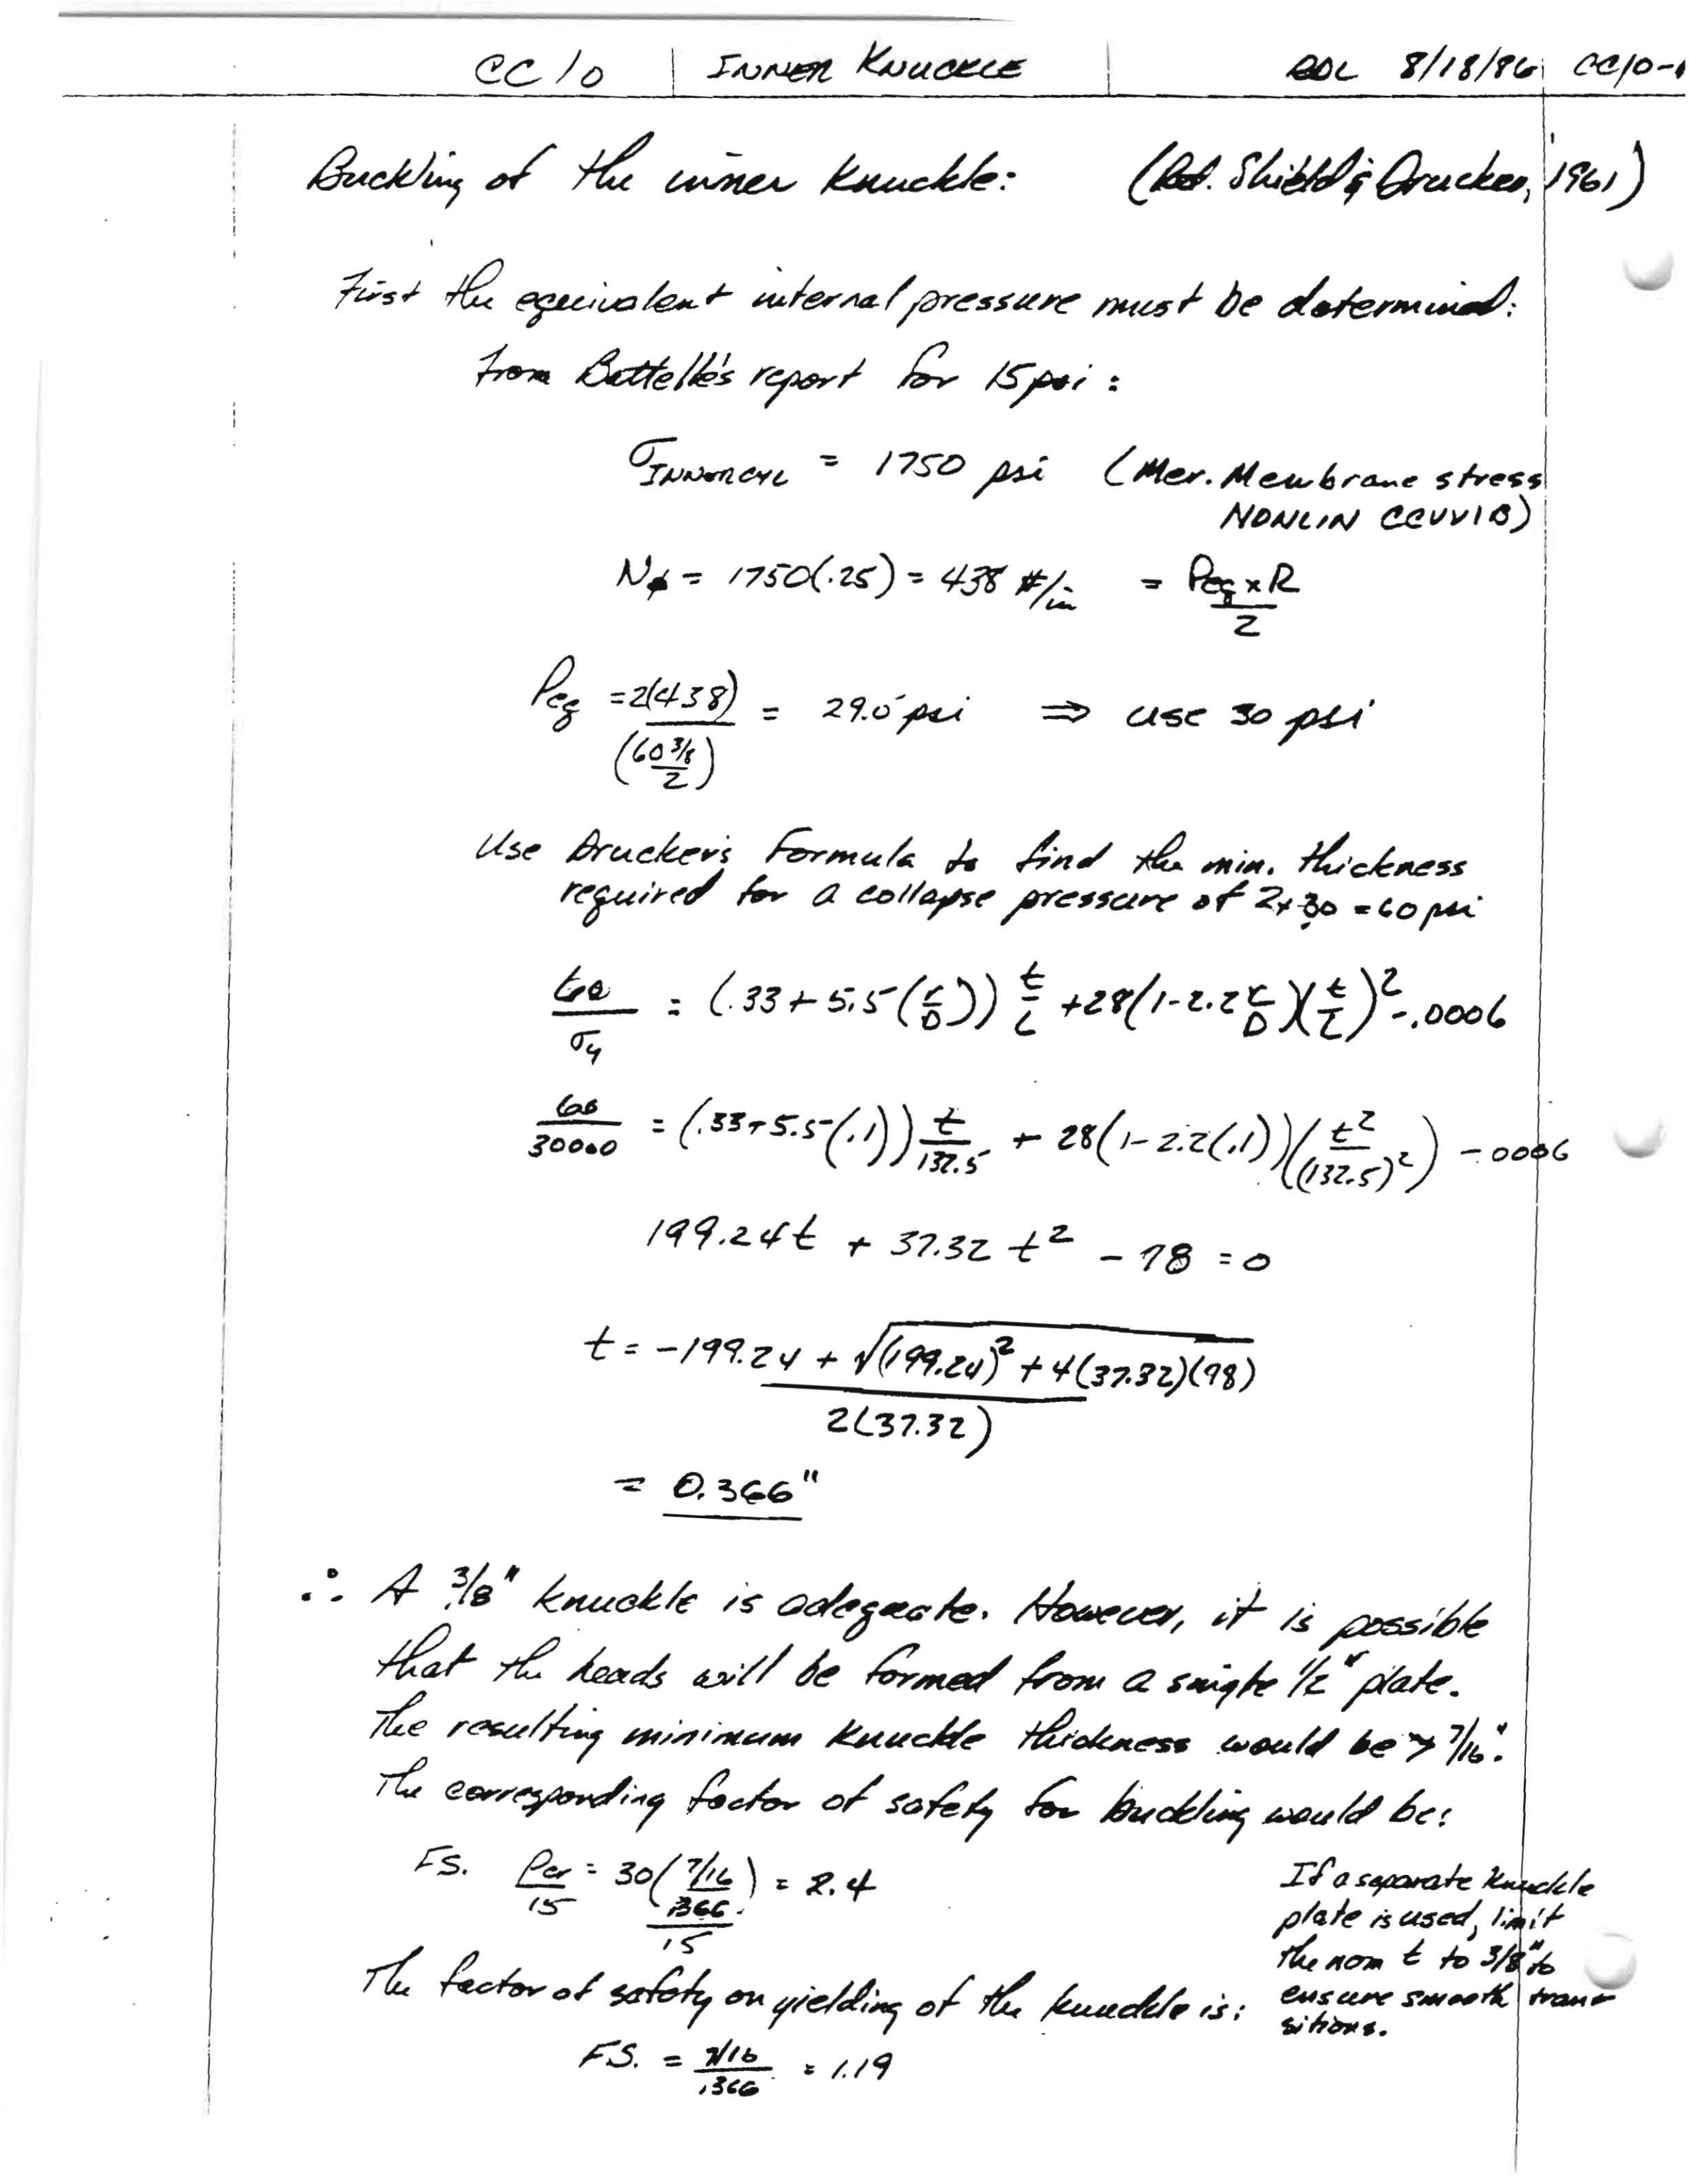 CC10 INNER KNUCKLE BDL 8/18/86 CC10-1
Buckling of the inner knuckle: (Ref. Shield & Drucker, 1961)
First the equivalent internal pressure must be determined:
from Battelle's report for 15 psi:
σINNERCYL = 1750 psi (Mer. Membrane stress
NONLIN CCUV1B)
Nϕ = 1750(.25) = 438 #/in = Peq x R / 2
Peq = 2(438) / (60 3/8 / 2) = 29.0 psi ⇒ use 30 psi
Use Drucker's Formula to find the min. thickness
required for a collapse pressure of 2x30 = 60 psi
60/σy = (.33 + 5.5(r/D)) t/L + 28(1-2.2 r/D)(t/L)² - .0006
60/30000 = (.33+5.5(.1)) t/132.5 + 28(1-2.2(.1))(t²/(132.5)²) - .0006
199.24t + 37.32 t² - 78 = 0
t = -199.24 + √((199.24)² + 4(37.32)(78)) / 2(37.32)
= 0.366"
∴ A 3/8" knuckle is adequate. However, it is possible
that the heads will be formed from a single 1/2" plate.
The resulting minimum knuckle thickness would be > 7/16".
The corresponding factor of safety for buckling would be:
FS. Pcr/15 = 30(7/16 / .366) / 15 = 2.4
If a separate knuckle
plate is used, limit
the nom t to 3/8" to
ensure smooth tran-
sitions.
The factor of safety on yielding of the knuckle is:
F.S. = 7/16 / .366 = 1.19